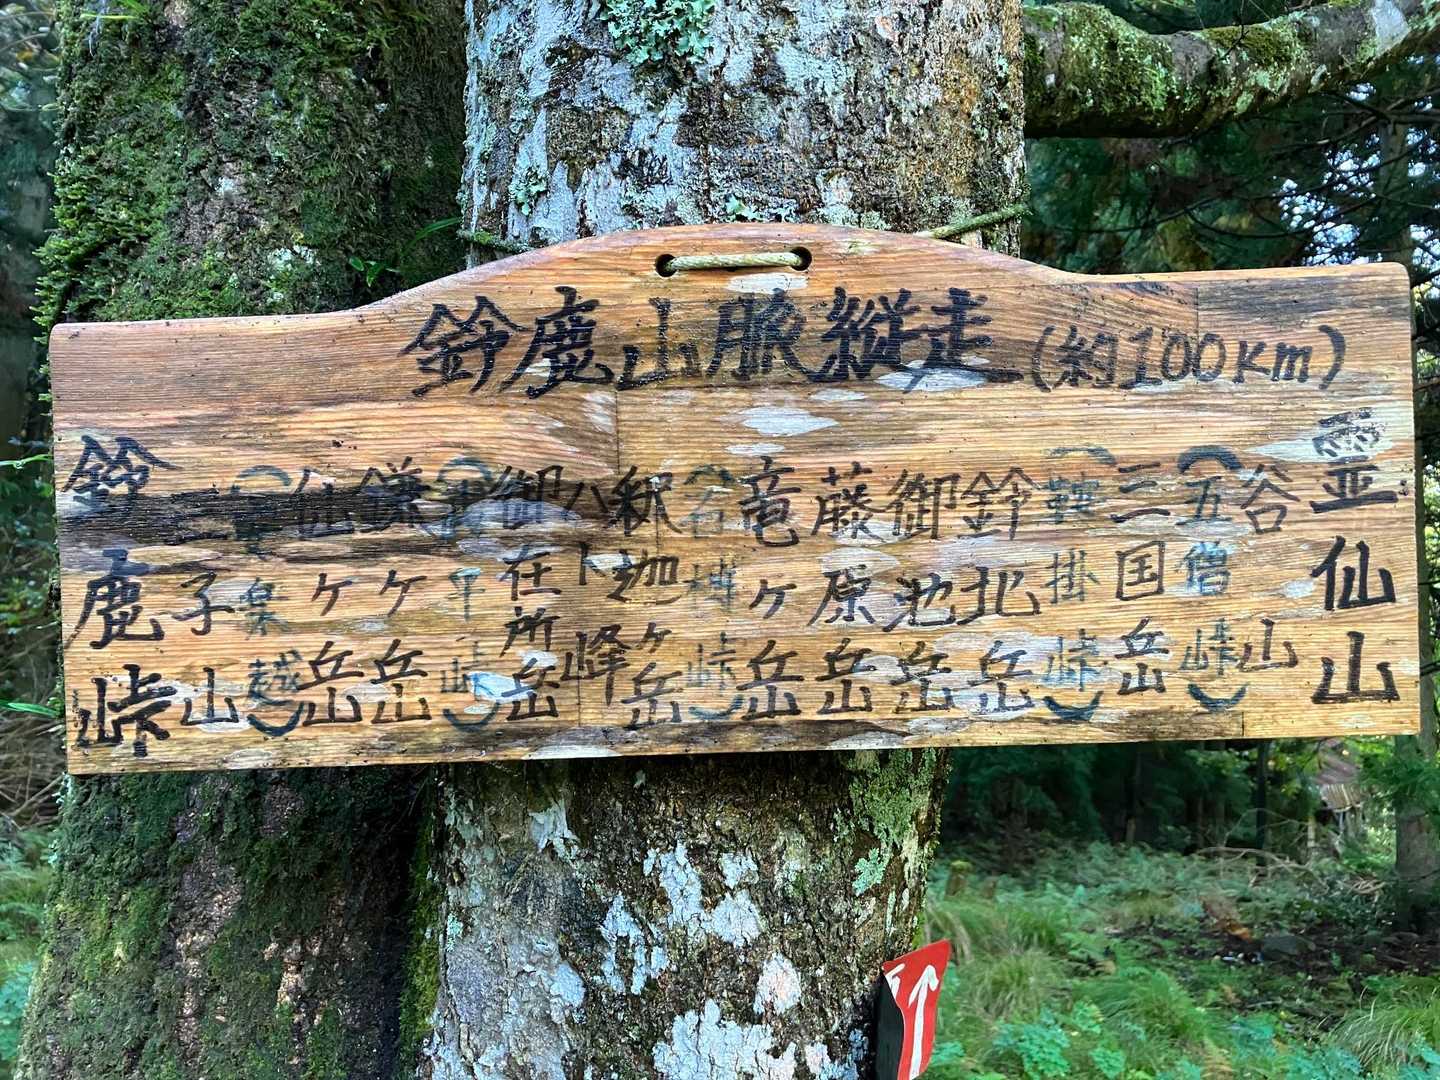 鈴鹿山脈縦走(約100Km)
鈴鹿峠
三子山
(安楽越)
仙ケ岳
鎌ケ岳
(武平峠)
御在所岳
ハト峰
釈迦ケ岳
(石榑峠)
竜ケ岳
藤原岳
御池岳
鈴北岳
(鞍掛峠)
三国岳
(五僧峠)
谷山
霊仙山